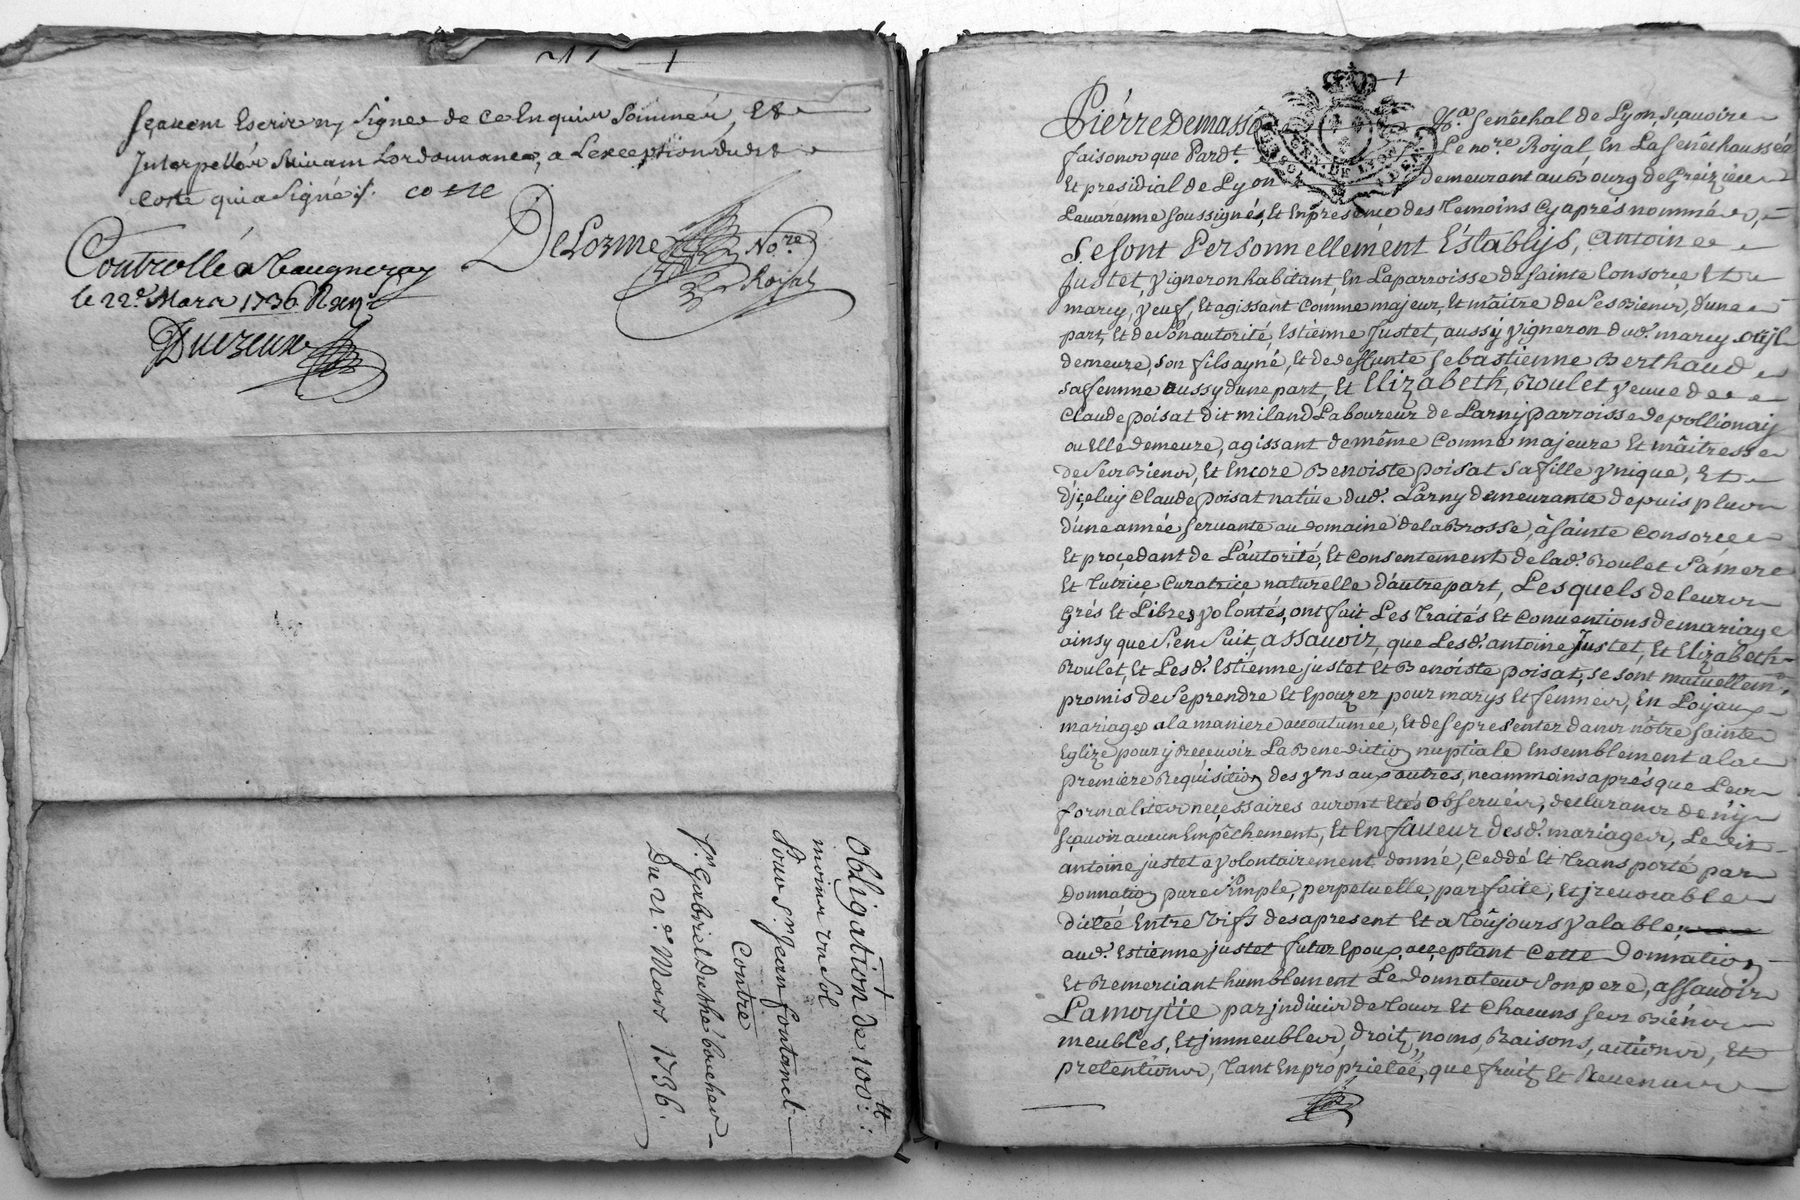 sçavent Escrire ny Signer de ce Enquis Sommés, Et
Interpellés Suivant Lordonnance, a Lexception dudit
Coste qui a Signé ./. coste
Delorme No.re
Royal
Controllé a Vaugneray
le 22e Mars 1736
Obligation de 100tt:
moins un sol
Pour Sr. Jean fontanel.
Contre
Sr. Gabriel
Du 21e Mars 1736.
Pierre Demasso Senéchal de Lyon, sçavoir
faisons que Pard.t Le no.re Royal En La Senêchaussée
Et presidial de Lyon demeurant au Bourg de Greizieu
Lavarenne soussigné, Et En presence des temoins cy aprés nommés,
Se sont Personnellement Establys, Antoine
Justet, vigneron habitant En La parroisse de Sainte Consorce Et
marcy, veuf, Et agissant comme majeur, Et maître de Ses Biens, d'une
part, Et de Son autorité, Estienne Justet, aussÿ vigneron dud. marcy
demeure, son fils ayné, Et de deffunte Sebastienne Berthaud
sa femme aussy d'une part, Et Elizabeth Roulet veuve de
Claude poisat dit miland Laboureur de Larny parroisse de pollionaÿ
ou Elle demeure, agissant de même comme majeure Et maîtresse
de Ses Biens, Et Encore Benoiste poisat sa fille ynique, Et
D'jceluÿ Claude poisat native dud. Larny demeurante depuis plus
d'une année servante au domaine de la Brosse, à Sainte Consorce
Et proçedant de L'autorité, Et consentement de lad. Roulet Sa mere
Et Tutriçe Curatriçe naturelle d'autre part, Lesquels de leurs
Grés Et Libres volontés, ont fait Les Traités Et Conventions de mariage
ainsy que S'en Suit, assavoir, que Lesd. antoine Justet, Et Elizabeth
Roulet, Et Lesd. Estienne justet Et Benoiste poisat, se sont mutuellem.t
promis de Se prendre Et Epouzer pour marys Et femmes, En Loÿaux
mariages a la maniere accoutumée, Et de se presenter dans nôtre Sainte
Eglize pour ÿ Recevoir La Benediction nuptiale Ensemblement a la
premiere Requisition des yns aux autres, neammoins aprés que Les
formalités neçessaires auront Etés observées, declarants de n'ÿ
sçavoir aucun Empêchement, Et En faveur desd. mariages, Le dit
antoine justet a volontairement donné, Ceddé Et Transporté par
Donnation pure Simple, perpetuelle, parfaite, Et jrrevocable
ditte Entre Vifs des apresent Et a Toûjours valable
aud. Estienne justet futur Epoux, acceptant Cette Donnation
Et Remerciant humblement Le donnateur Son pere, assavoir
La moytié par jndivis de Tous Et Chacuns ses Biéns
meublés, Et jmmeubles, droitz, noms, Raisons, actions, Et
pretentions, Tant En proprieteé, que fruitz Et Revenus